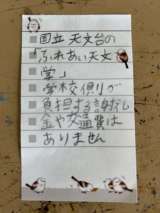 国立天文台の
ふれあい天文
学」
学校側が
負担する謝礼
金や交通費は
ありません